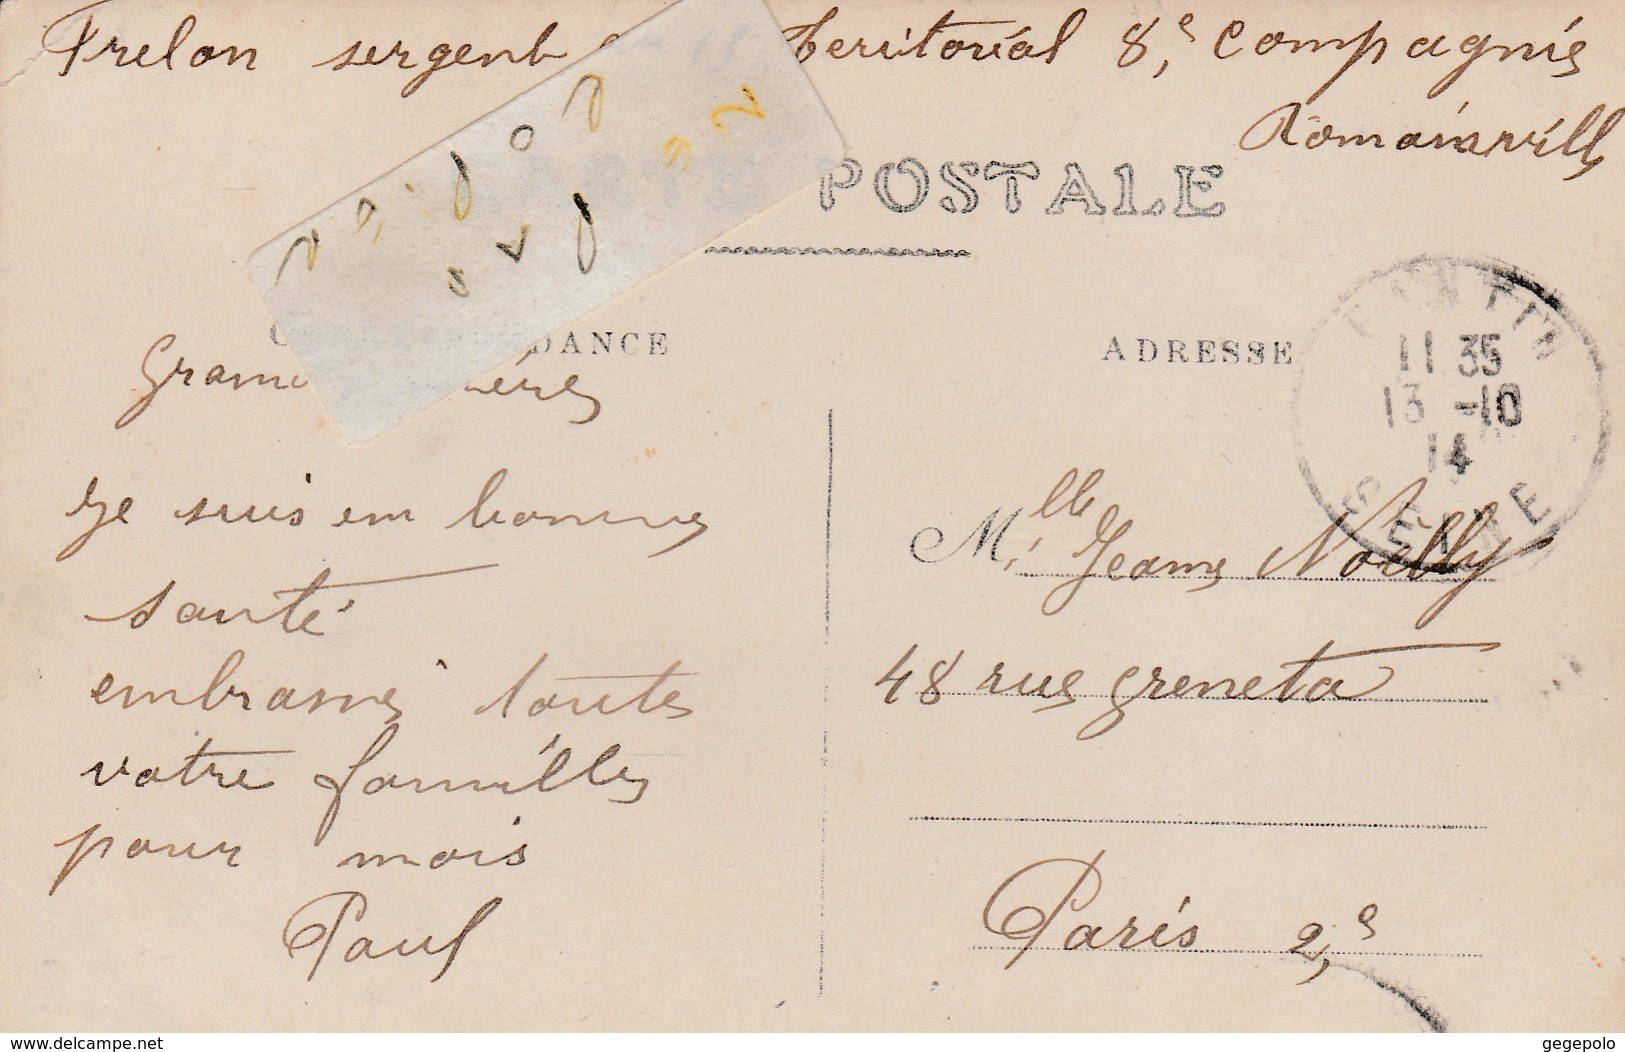 Frelon sergent territorial 8e, Compagnie
Romainville
POSTALE
DANCE
ADRESSE
PANTIN
11 35
13 -10
14
SEINE
Je suis en bonne
santé
embrasse toute
votre famille
pour mois
Paul
Mlle Jeanne Noëlly
48 rue greneta
Paris 2e
www.delcampe.net
gegepolo